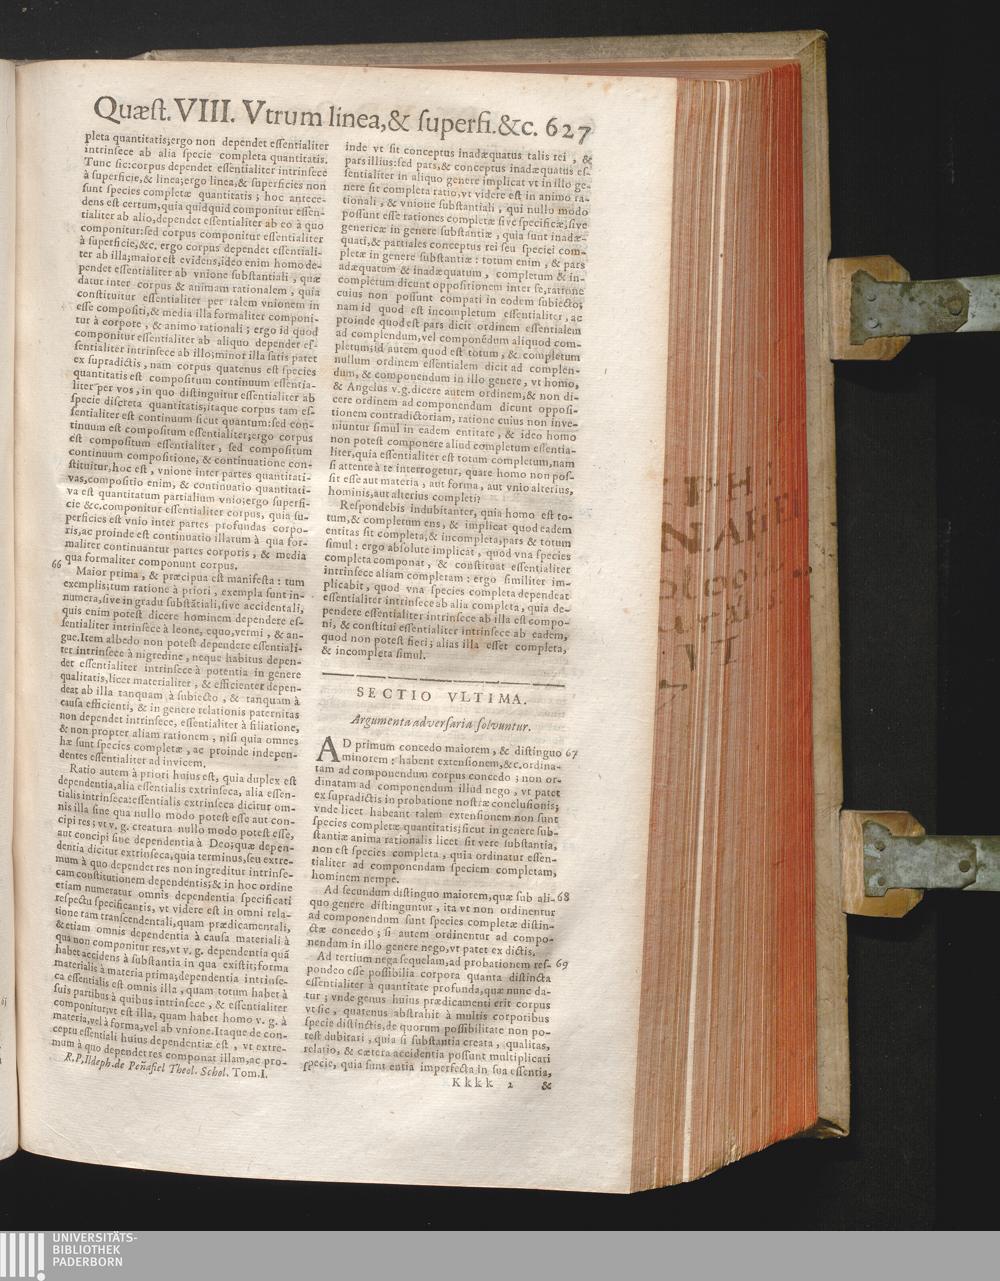 Quæſt. VIII. Vtrum linea, & ſuperfi. &c. 627
pleta quantitatis; ergo non dependet eſſentialiter
intrinſece ab alia ſpecie completa quantitatis.
Tunc ſic: corpus dependet eſſentialiter intrinſece
à ſuperficie, & linea; ergo linea, & ſuperficies non
ſunt ſpecies completæ quantitatis; hoc antece-
dens eſt certum, quia quidquid componitur eſſen-
tialiter ab alio, dependet eſſentialiter ab eo à quo
componitur: ſed corpus componitur eſſentialiter
à ſuperficie, &c. ergo corpus dependet eſſentiali-
ter ab illa; maior eſt evidens, ideo enim homo de-
pendet eſſentialiter ab vnione ſubſtantiali, quæ
datur inter corpus & animam rationalem, quia
conſtituitur eſſentialiter per talem vnionem in
eſſe compoſiti, & media illa formaliter componi-
tur à corpore, & animo rationali; ergo id quod
componitur eſſentialiter ab aliquo dependet eſ-
ſentialiter intrinſece ab illo; minor illa ſatis patet
ex ſupradictis, nam corpus quatenus eſt ſpecies
quantitatis eſt compoſitum continuum eſſentia-
liter per vos, in quo diſtinguitur eſſentialiter ab
ſpecie diſcreta quantitatis; itaque corpus tam eſ-
ſentialiter eſt continuum ſicut quantum: ſed con-
tinuum eſt compoſitum eſſentialiter; ergo corpus
eſt compoſitum eſſentialiter, ſed compoſitum
continuum compoſitione, & continuatione con-
ſtituitur, hoc eſt, vnione inter partes quantitati-
vas, compoſitio enim, & continuatio quantitati-
va eſt quantitatum partialium vnio; ergo ſuperfi-
cie &c. componitur eſſentialiter corpus, quia ſu-
perficies eſt vnio inter partes profundas corpo-
ris, ac proinde eſt continuatio illarum à qua for-
maliter continuantur partes corporis, & media
qua formaliter componunt corpus.
66 Maior prima, & præcipua eſt manifeſta: tum
exemplis; tum ratione à priori, exempla ſunt in-
numera, ſive in gradu ſubſtãtiali, ſive accidentali,
quis enim poteſt dicere hominem dependere eſ-
ſentialiter intrinſece à leone, equo, vermi, & an-
gue. Item albedo non poteſt dependere eſſentiali-
ter intrinſece à nigredine, neque habitus depen-
det eſſentialiter intrinſece à potentia in genere
qualitatis, licet materialiter, & efficienter depen-
deat ab illa tanquam à ſubiecto, & tanquam à
cauſa efficienti, & in genere relationis paternitas
non dependet intrinſece, eſſentialiter à filiatione,
& non propter aliam rationem, niſi quia omnes
hæ ſunt ſpecies completæ, ac proinde indepen-
dentes eſſentialiter ad invicem.
Ratio autem à priori huius eſt, quia duplex eſt
dependentia, alia eſſentialis extrinſeca, alia eſſen-
tialis intrinſeca: eſſentialis extrinſeca dicitur om-
nis illa ſine qua nullo modo poteſt eſſe aut con-
cipi res; vt v. g. creatura nullo modo poteſt eſſe,
aut concipi ſine dependentia à Deo; quæ depen-
dentia dicitur extrinſeca, quia terminus, ſeu extre-
mum à quo dependet res non ingreditur intrinſe-
cam conſtitutionem dependentis; & in hoc ordine
etiam numeratur omnis dependentia ſpecificati
reſpectu ſpecificantis, vt videre eſt in omni rela-
tione tam tranſcendentali, quam prædicamentali,
& etiam omnis dependentia à cauſa materiali à
qua non componitur res, vt v. g. dependentia quã
habet accidens à ſubſtantia in qua exiſtit; forma
materialis à materia prima; dependentia intrinſe-
ca eſſentialis eſt omnis illa, quam totum habet à
ſuis partibus à quibus intrinſece, & eſſentialiter
componitur, vt eſt illa, quam habet homo v. g. à
materia, vel à forma, vel ab vnione. Itaque de con-
ceptu eſſentiali huius dependentiæ eſt, vt extre-
mum à quo dependet res componat illam, ac pro-
R. P. Ildeph. de Peñafiel Theol. Schol. Tom. I.
inde vt ſit conceptus inadæquatus talis rei, &
pars illius: ſed pars, & conceptus inadæquatus eſ-
ſentialiter in aliquo genere implicat vt in illo ge-
nere ſit completa ratio, vt videre eſt in animo ra-
tionali, & vnione ſubſtantiali, qui nullo modo
poſſunt eſſe rationes completæ ſive ſpecificæ, ſive
genericæ in genere ſubſtantiæ, quia ſunt inadæ-
quati, & partiales conceptus rei ſeu ſpeciei com-
pletæ in genere ſubſtantiæ: totum enim, & pars
adæquatum & inadæquatum, completum & in-
completum dicunt oppoſitionem inter ſe, ratione
cuius non poſſunt compati in eodem ſubiecto;
nam id quod eſt incompletum eſſentialiter, ac
proinde quod eſt pars dicit ordinem eſſentialem
ad complendum, vel componẽdum aliquod com-
pletum; id autem quod eſt totum, & completum
nullum ordinem eſſentialem dicit ad complen-
dum, & componendum in illo genere, vt homo,
& Angelus v. g. dicere autem ordinem, & non di-
cere ordinem ad componendum dicunt oppoſi-
tionem contradictoriam, ratione cuius non inve-
niuntur ſimul in eadem entitate, & ideo homo
non poteſt componere aliud completum eſſentia-
liter, quia eſſentialiter eſt totum completum, nam
ſi attente à te interrogetur, quare homo non poſ-
ſit eſſe aut materia, aut forma, aut vnio alterius,
hominis, aut alterius completi?
Reſpondebis indubitanter, quia homo eſt to-
tum, & completum ens, & implicat quod eadem
entitas ſit completa, & incompleta, pars & totum
ſimul: ergo abſolute implicat, quod vna ſpecies
completa componat, & conſtituat eſſentialiter
intrinſece aliam completam: ergo ſimiliter im-
plicabit, quod vna ſpecies completa dependeat
eſſentialiter intrinſece ab alia completa, quia de-
pendere eſſentialiter intrinſece ab illa eſt compo-
ni, & conſtitui eſſentialiter intrinſece ab eadem,
quod non poteſt fieri; alias illa eſſet completa,
& incompleta ſimul.
SECTIO VLTIMA.
Argumenta adverſaria ſolvuntur.
AD primum concedo maiorem, & diſtinguo 67
minorem: habent extenſionem, &c. ordina-
tam ad componendum corpus concedo; non or-
dinatam ad componendum illud nego, vt patet
ex ſupradictis in probatione noſtræ concluſionis;
vnde licet habeant talem extenſionem non ſunt
ſpecies completæ quantitatis; ſicut in genere ſub-
ſtantiæ anima rationalis licet ſit vere ſubſtantia,
non eſt ſpecies completa, quia ordinatur eſſen-
tialiter ad componendam ſpeciem completam,
hominem nempe.
Ad ſecundum diſtinguo maiorem, quæ ſub ali- 68
quo genere diſtinguntur, ita vt non ordinentur
ad componendum ſunt ſpecies completæ diſtin-
ctæ concedo; ſi autem ordinentur ad compo-
nendum in illo genere nego, vt patet ex dictis.
Ad tertium nega ſequelam, ad probationem reſ- 69
pondeo eſſe poſſibilia corpora quanta diſtincta
eſſentialiter à quantitate profunda, quæ nunc da-
tur; vnde genus huius prædicamenti erit corpus
vt ſic, quatenus abſtrahit à multis corporibus
ſpecie diſtinctis, de quorum poſſibilitate non po-
teſt dubitari, quia ſi ſubſtantia creata, qualitas,
relatio, & cætera accidentia poſſunt multiplicari
ſpecie, quia ſunt entia imperfecta in ſua eſſentia,
Kkkk 2 &
UNIVERSITÄTS-
BIBLIOTHEK
PADERBORN